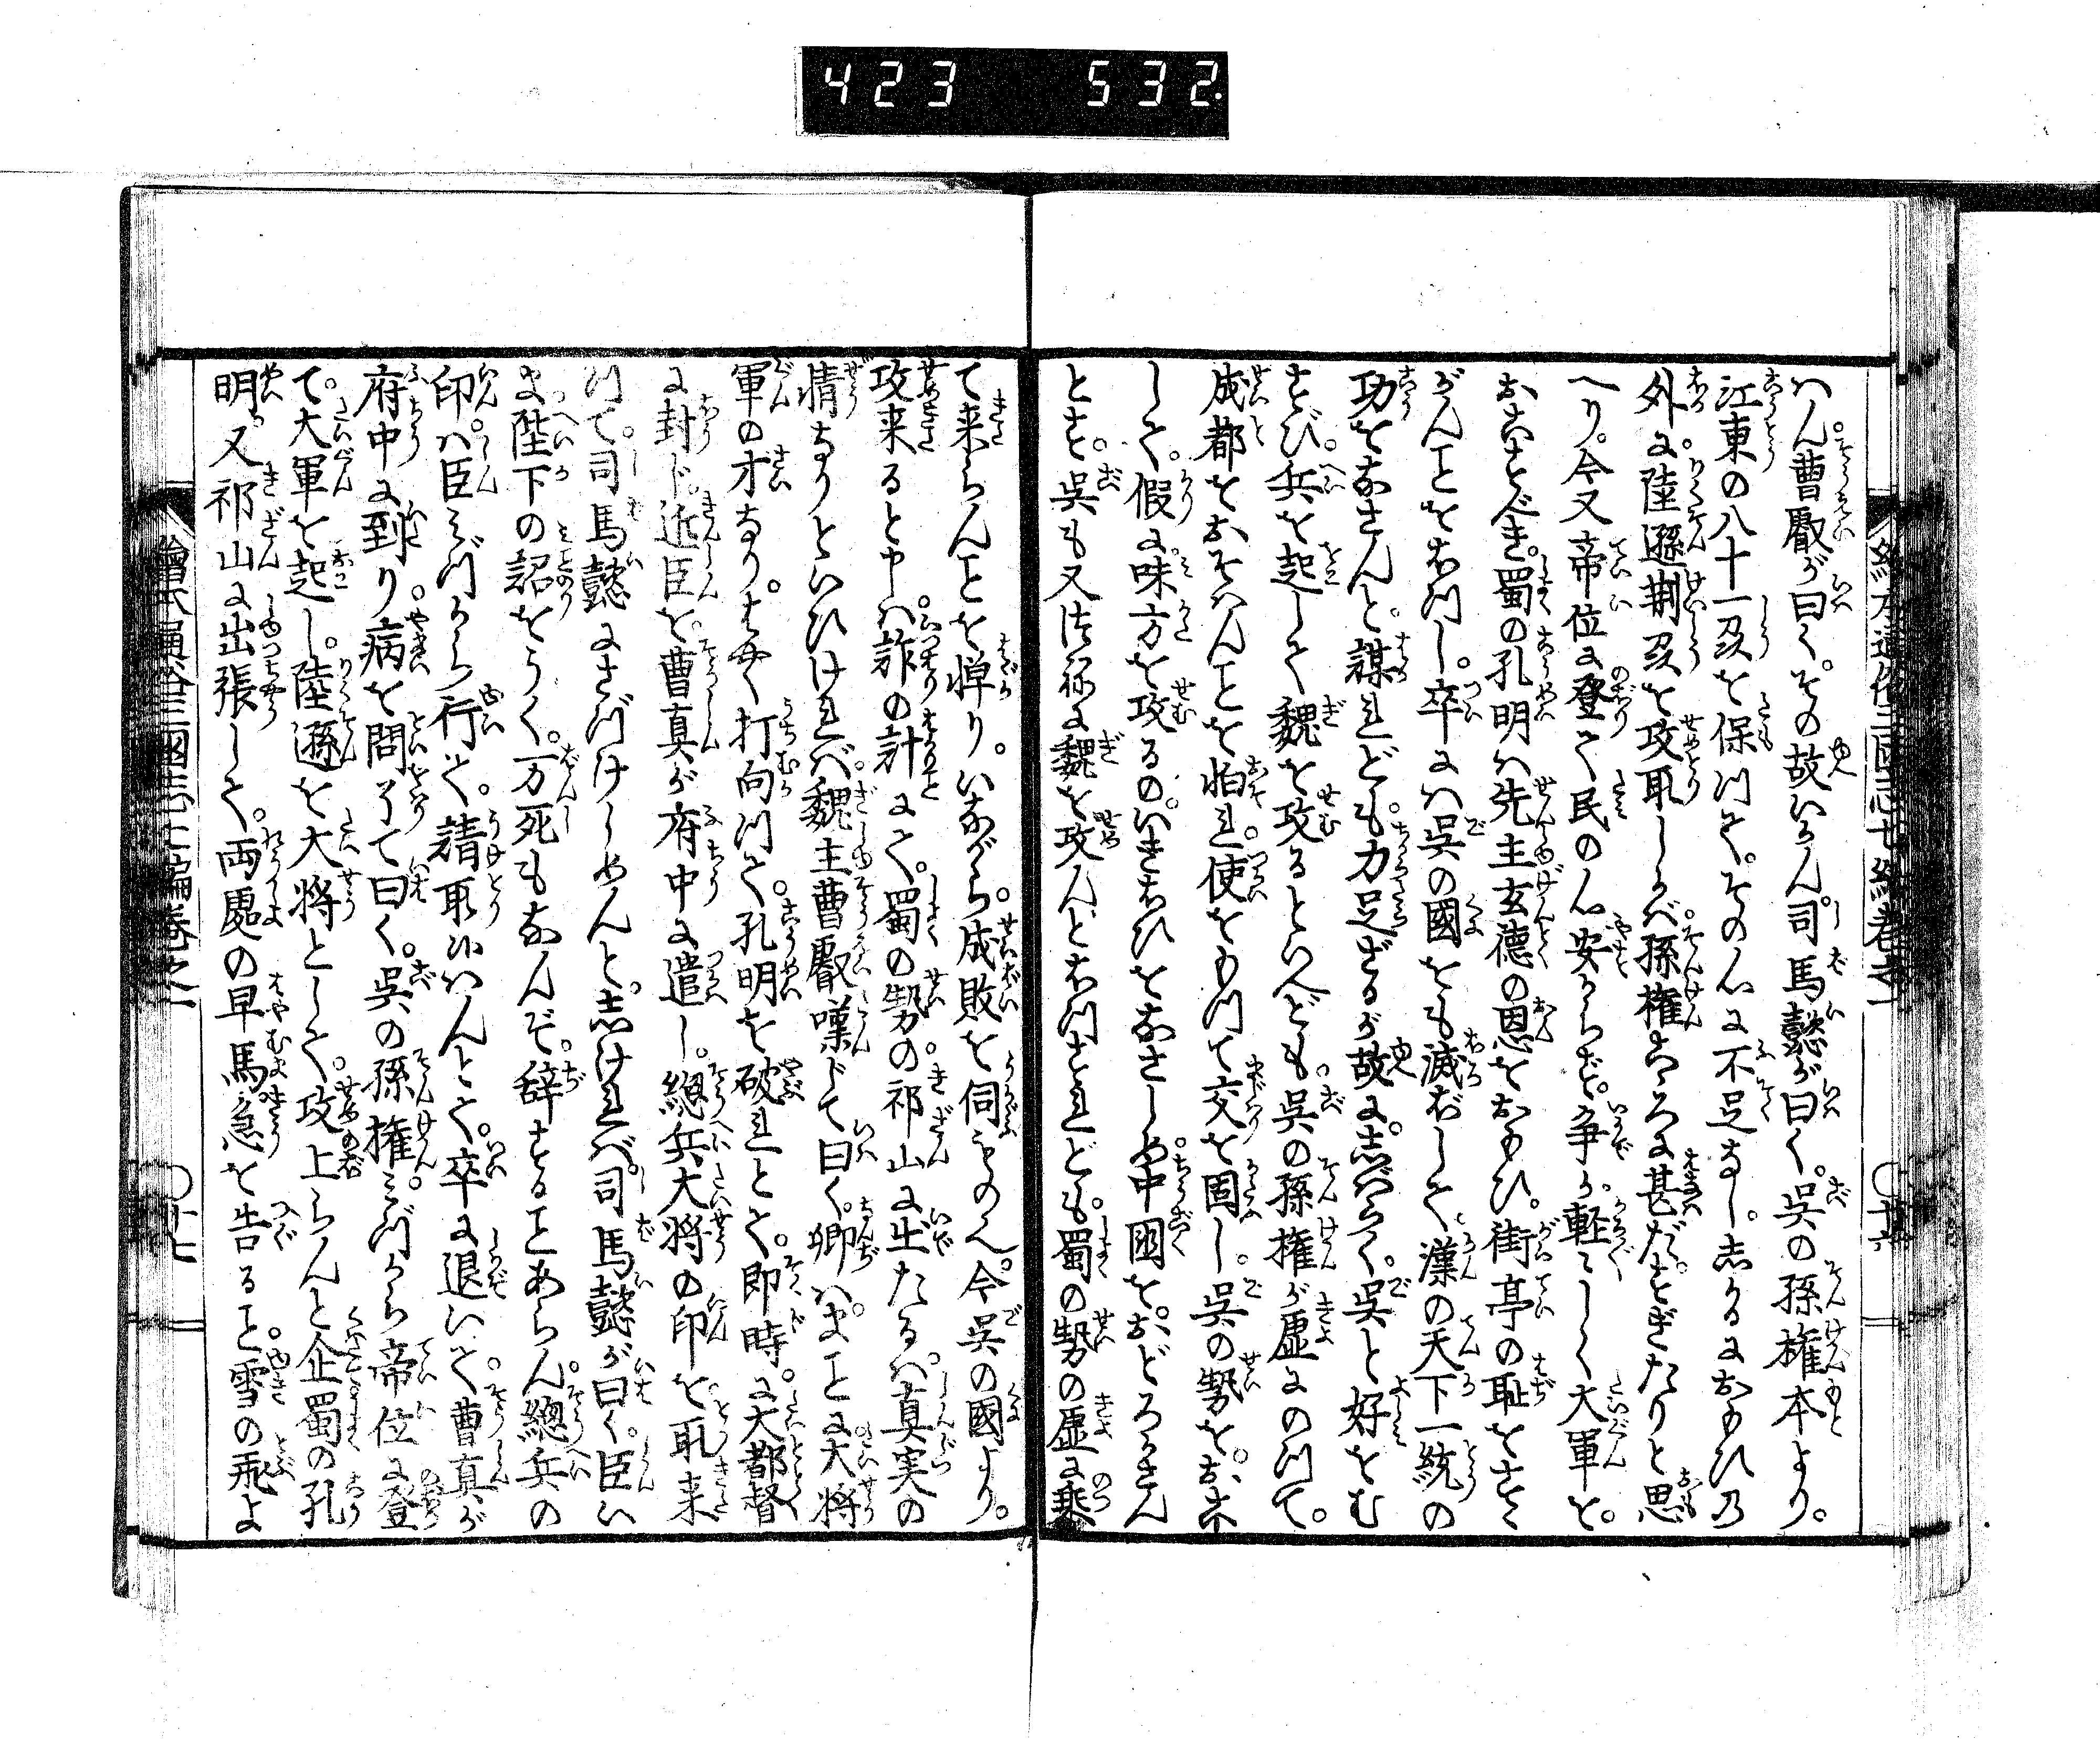 423 532.
はん。曹叡が曰く。その故いかん。司馬懿が曰く。呉の孫権本より。
江東の八十一郡を保つて。その心に不足なし。しかるにおもひ乃
外に。陸遜荊州を攻取しかば。孫権こゝろに甚だ。すぎたりと思
へり。今又帝位に登て民の心安からず。争か軽々しく大軍を。
おこすべき。蜀の孔明は先主玄徳の恩をおもひ。街亭の耻をすゝ
がんことをおもし。卒には呉の國をも滅ぼして漢の天下一統の
功をなさんと。謀れども。力足ざるが故に。しばらく。呉と好をむ
すび。兵を起して魏を攻るといへども。呉の孫権が虚にのつて。
成都をおそはんことを怕れ。使をもつて交を固し。呉の勢を。おこ
して。假に味方を攻るの。いきおひをなさしめ。中國を。おどろかさん
とす。呉も又はじめに魏を攻んとおつすれども。蜀の勢の虚に乗
て来らんことを憚り。いながら。成敗を伺ものん。今呉の國より。
攻来ると申は詐の計にて。蜀の勢の。祁山に出たるは。真実の
情なりといひければ。魏主曹叡嘆じて曰く。卿は。まことに大将
軍の才なり。はやく打向つて。孔明を破れとて。即時に。大都督
に封じ。近臣を。曹真が府中に遣し。總兵大将の印を。取来
つて。司馬懿にさづけしめんと。しければ。司馬懿が曰く。臣い
ま陛下の詔をうく。万死もなんぞ。辞することあらん。總兵の
印。は臣みづから行て。請取候はんとて。卒に退いて。曹真が
府中に到り。病を問了て曰く。呉の孫権。みづから帝位に登
て。大軍を起し。陸遜を大将として。攻上らんと企蜀の孔
明。又祁山に出張して。両處の早馬。急を告ること。雪の飛よ
繪本通俗三國志七編巻之一
十七